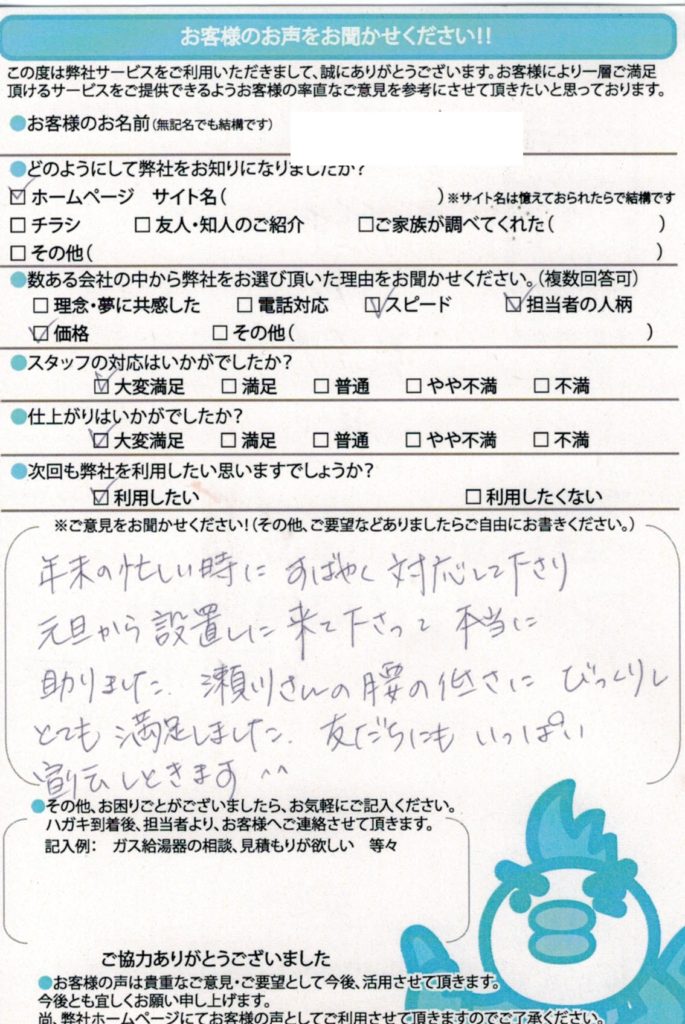 お客様のお声をお聞かせください!!
この度は弊社サービスをご利用いただきまして、誠にありがとうございます。お客様により一層ご満足
頂けるサービスをご提供できるようお客様の率直なご意見を参考にさせて頂きたいと思っております。
●お客様のお名前(無記名でも結構です)
●どのようにして弊社をお知りになりましたか?
☑ホームページ サイト名( )※サイト名は憶えておられたらで結構です
□チラシ □友人・知人のご紹介 □ご家族が調べてくれた( )
□その他( )
●数ある会社の中から弊社をお選び頂いた理由をお聞かせください。(複数回答可)
□理念・夢に共感した □電話対応 ☑スピード ☑担当者の人柄
☑価格 □その他( )
●スタッフの対応はいかがでしたか?
☑大変満足 □満足 □普通 □やや不満 □不満
●仕上がりはいかがでしたか?
☑大変満足 □満足 □普通 □やや不満 □不満
●次回も弊社を利用したい思いますでしょうか?
☑利用したい □利用したくない
※ご意見をお聞かせください!(その他、ご要望などありましたらご自由にお書きください。)
年末の忙しい時に すばやく 対応して下さり
元旦から設置しに来て下さって 本当に
助りました。瀬川さんの腰の低さに びっくりし
とても満足しました。友だちにも いっぱい
宣伝しときます ^^
●その他、お困りごとがございましたら、お気軽にご記入ください。
ハガキ到着後、担当者より、お客様へご連絡させて頂きます。
記入例: ガス給湯器の相談、見積もりが欲しい 等々
ご協力ありがとうございました
●お客様の声は貴重なご意見・ご要望として今後、活用させて頂きます。
今後とも宜しくお願い申し上げます。
尚、弊社ホームページにてお客様の声としてご利用させて頂きますのでご了承ください。